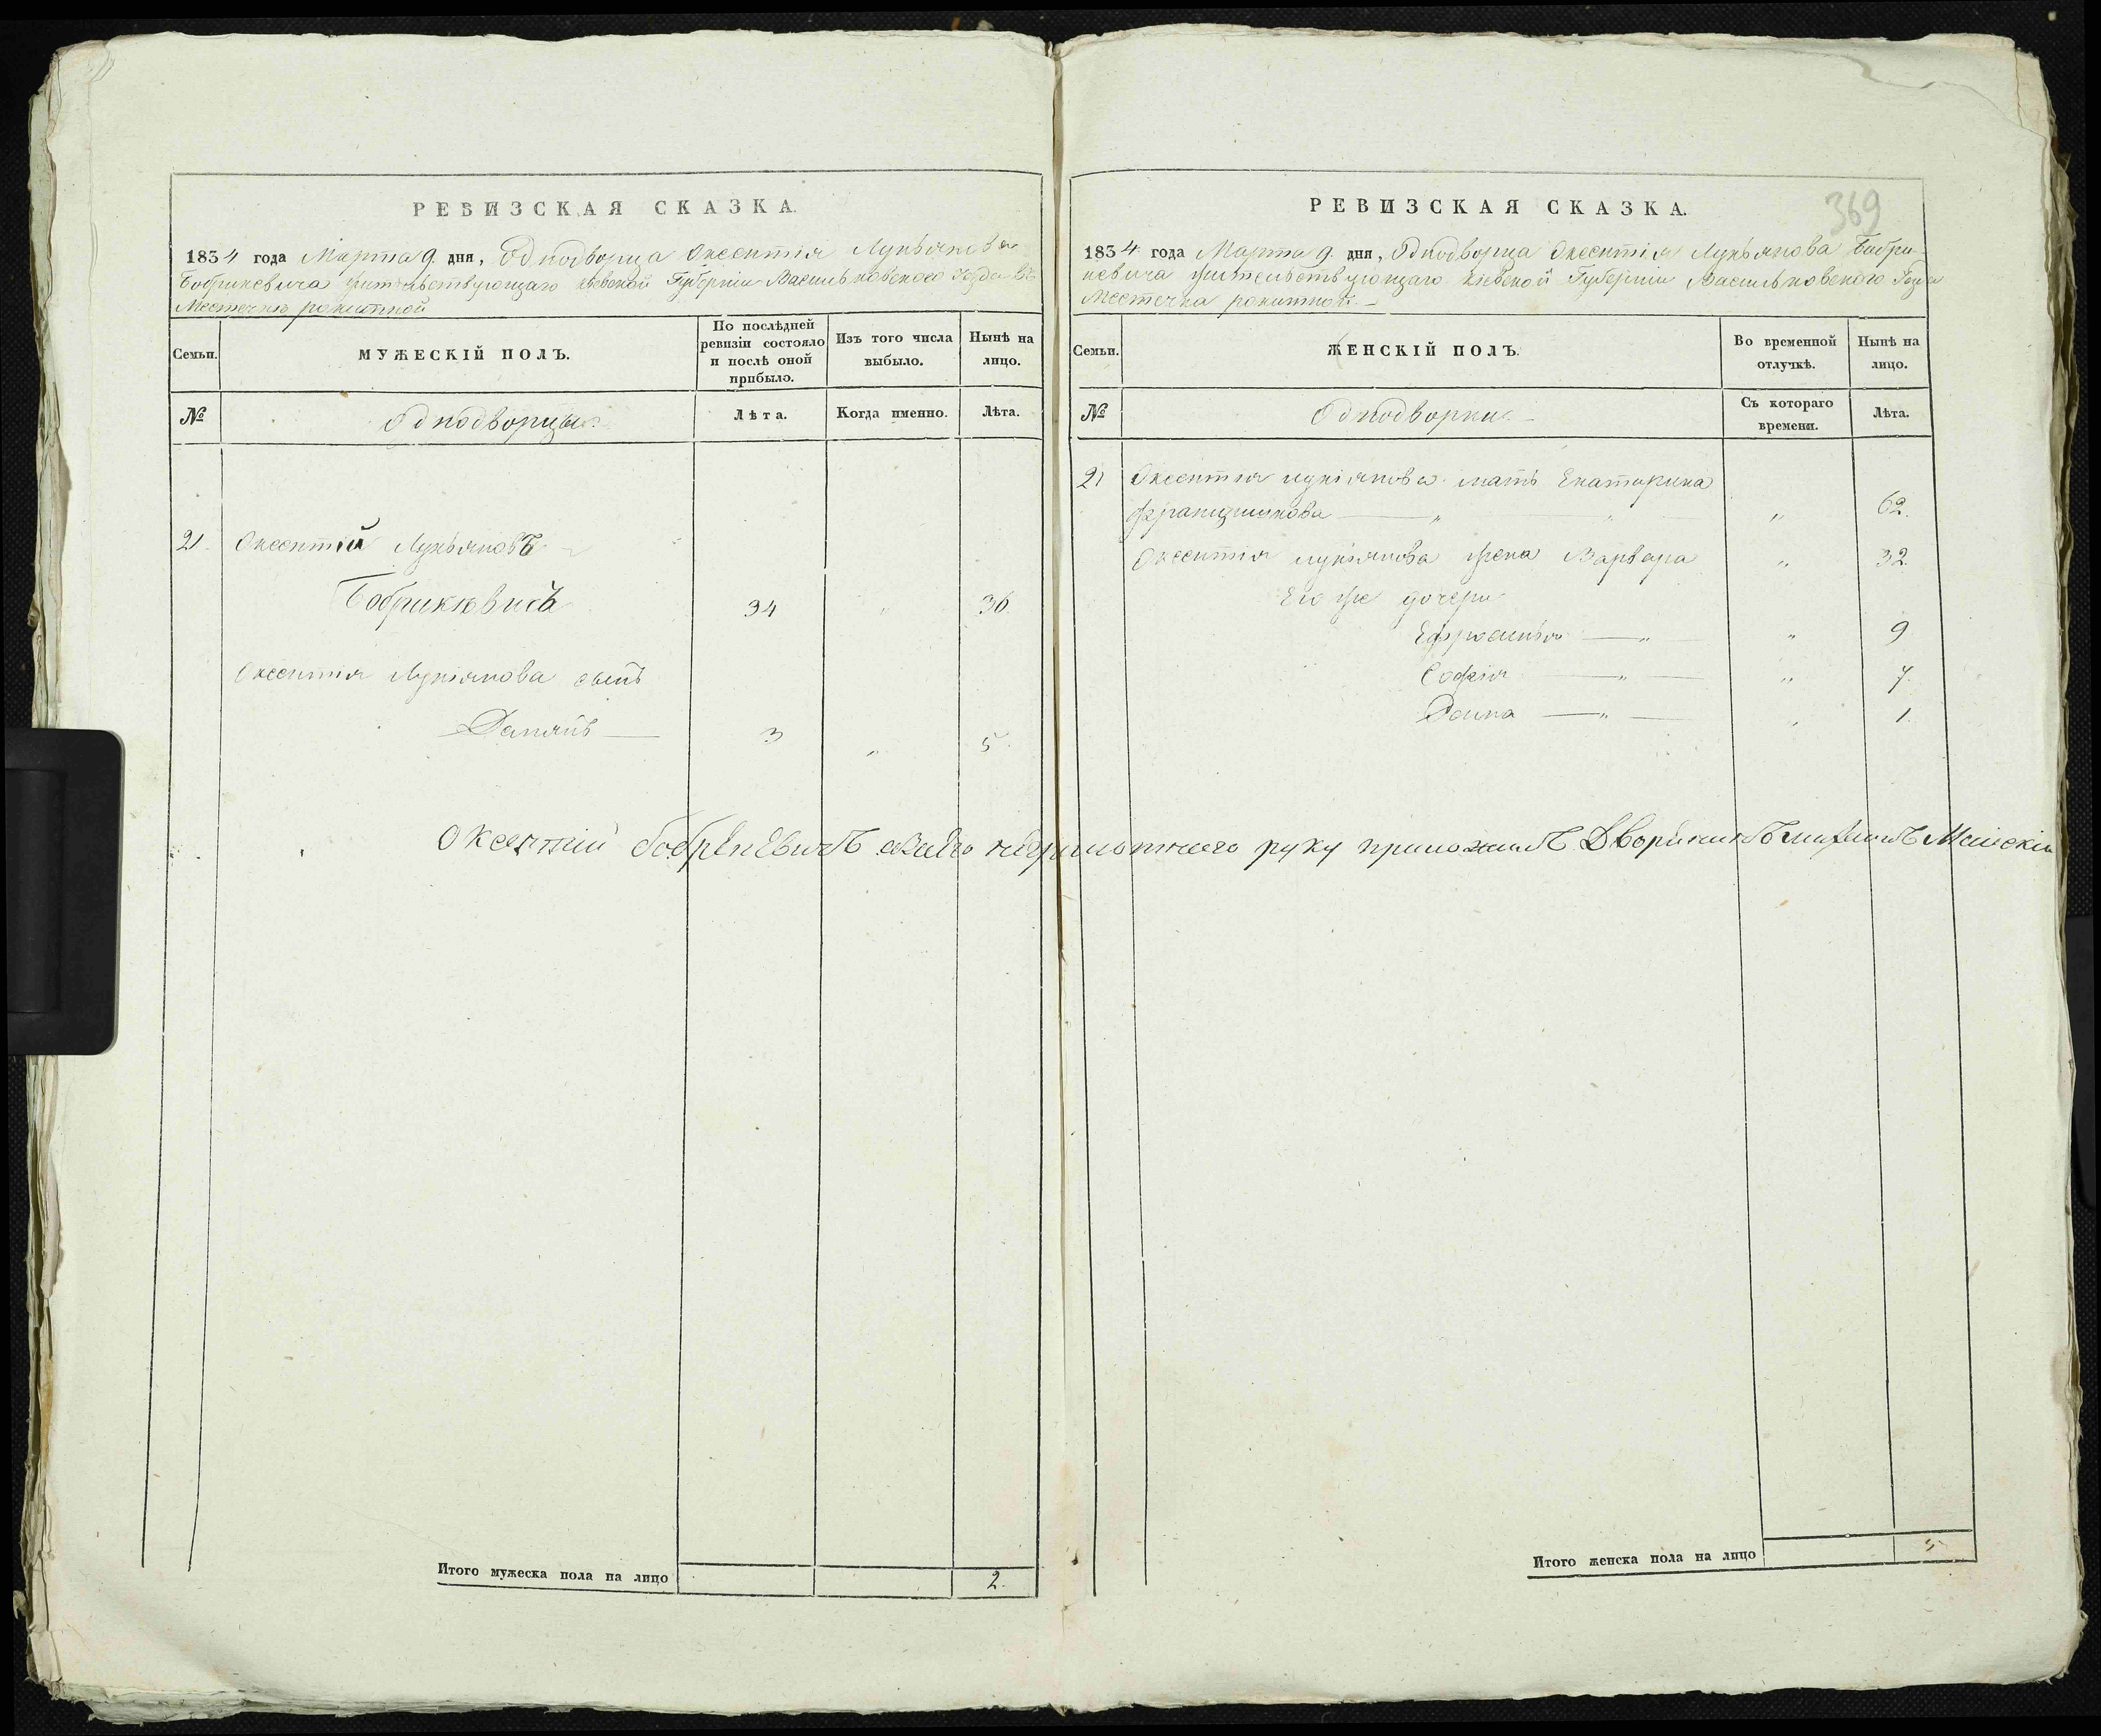 РЕВИЗСКАЯ СКАЗКА.
1834 года Марта 9. дня, Однодворца Оксентія Лукьянова
Бобрикевича жительствующаго Кіевской Губерніи Васильковского Уезда Въ
Местечкѣ рокитной
Семьи.
МУЖЕСКІЙ ПОЛЪ.
По послѣдней
ревизіи состояло
и послѣ оной
прибыло.
Изъ того числа
выбыло.
Нынѣ на
лицо.
№
Однодворцы
Лѣта.
Когда именно.
Лѣта.
21. Оксентій Лукьяновъ
Бобрикѣвичъ 34 " 36
Оксентія Лукіянова сынъ
3 " 5
Оксентій руку приложилъ Дворянинъ
Итого мужеска пола на лицо 2.
369
РЕВИЗСКАЯ СКАЗКА.
1834 года Марта 9. дня, Однодворца Оксентія Лукьянова Бобри-
кевича жительствующаго Кіевской Губерніи Васильковского Уезда
Местечка рокитной. —
Семьи.
ЖЕНСКІЙ ПОЛЪ.
Во временной
отлучкѣ.
Нынѣ на
лицо.
№
Однодворки
Съ котораго
времени.
Лѣта.
21 Оксентія лукіянова мать Екатарина
" 62.
Оксентія лукіянова жена Варвара " 32.
Его же дочери
" 9
Софія — " — " 7.
" 1.
Итого женска пола на лицо 5